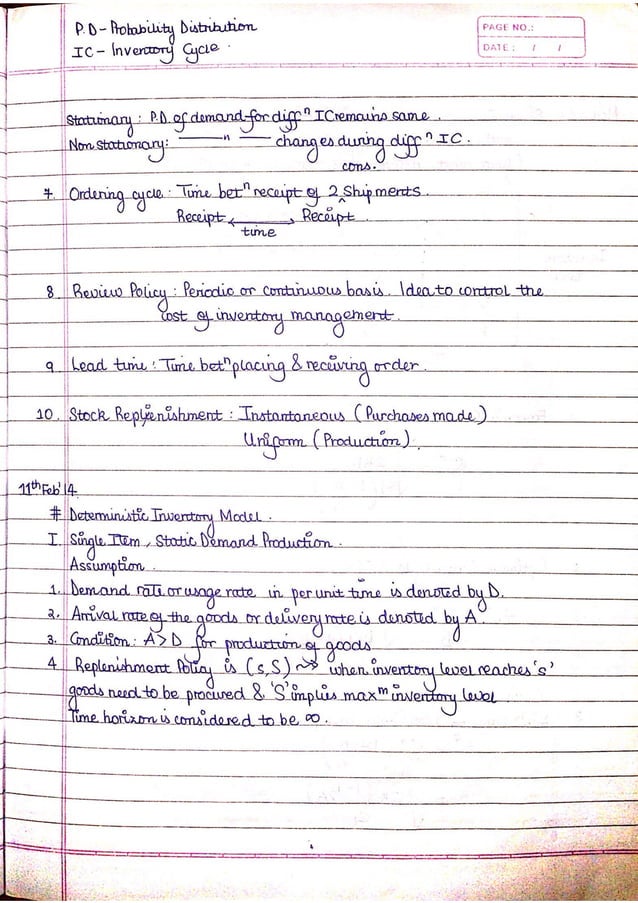 P.D - Probability Distribution
IC - Inventory Cycle.
PAGE NO.:
DATE: / /
Stationary: P.D. of demand for diffⁿ IC remains same.
Non Stationary: —— ⁿ —— changes during diffⁿ IC.
cons.
7. Ordering cycle: Time betⁿ receipt of 2 ^ Shipments.
Receipt ←→ Receipt.
time
8. Review Policy: Periodic or continuous basis. Idea to control the
cost of inventory management.
9. Lead time: Time betⁿ placing & receiving order.
10. Stock Replenishment: Instantaneous (Purchases made)
Uniform (Production).
11th Feb'14.
# Deterministic Inventory Model.
I. Single Item, Static Demand Production.
Assumption.
1. Demand rate or usage rate in per unit time is denoted by D.
2. Arrival rate of the goods or delivery rate is denoted by A.
3. Condition: A>D for production of goods
4. Replenishment Policy is (s,S) ⇝ when inventory level reaches 's'
goods need to be procured & 'S' implies maxᵐ inventory level
Time horizon is considered to be ∞.